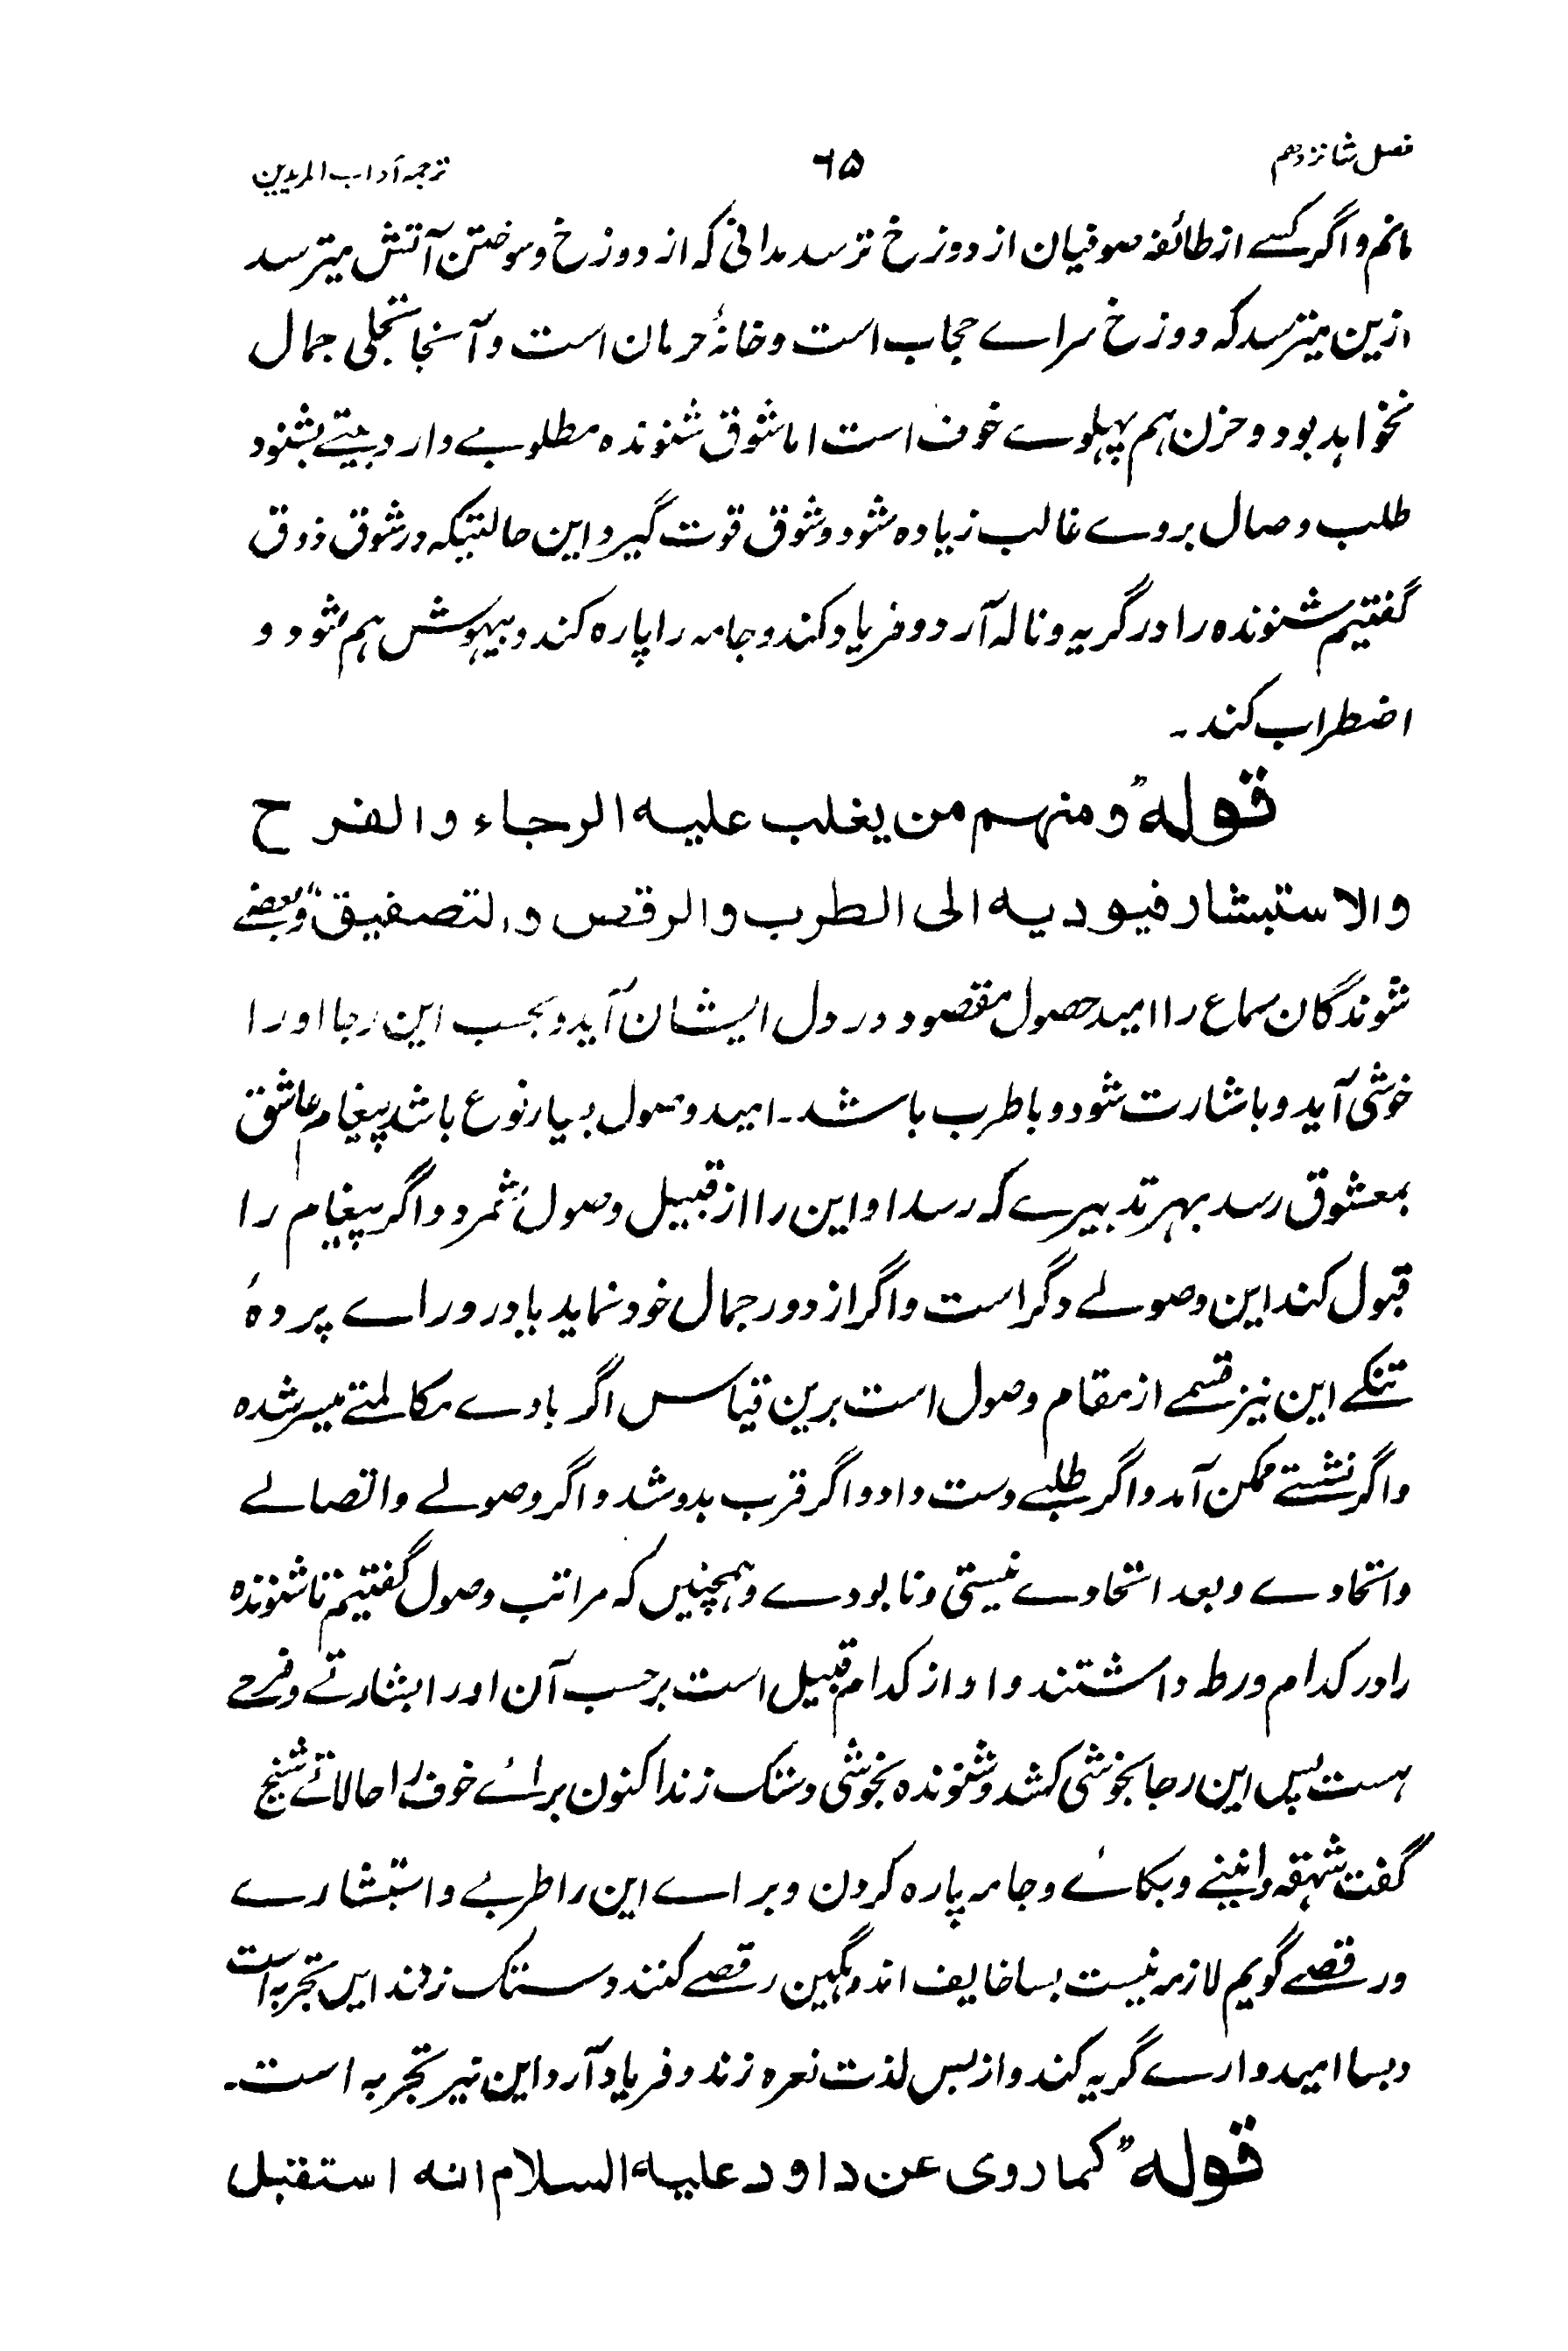 فصل شانزدهم
۶۵
ترجمہ آداب المریدین
مانم و اگر کسے از طائفہ صوفیان از دوزخ ترسد مدانی کہ از دوزخ و سوختن آتش میترسد
ازین میترسد کہ دوزخ سراے حجاب است و خانۂ حرمان است و آنجا تجلی جمال
نخواہد بود و حزن ہم پہلوے خوف است اما شوق شنوندہ مطلوبے دارد بیتے بشنود
طلب وصال بروے غالب زیادہ شود و شوق قوت گیرد این حالتیکہ در شوق ذوق
گفتیم شنوندہ را در گریہ و نالہ آرد و فریاد کند و جامہ را پارہ کند و بیہوش ہم شود و
اضطراب کند ۔
قولہ ”و منہم من یغلب علیہ الرجاء و الفرح
والاستبشار فیودیہ الی الطرب والرقص والتصفیق“ و بعضے
شوندگان سماع را امید حصول مقصود در دل ایشان آید و بحسب این رجا او را
خوشی آید و باشارت شود و با طرب باشد۔ امید وصول بسیار نوع باشد پیغام عاشق
بمعشوق رسد بہر تدبیرے کہ رسد او این را از قبیل وصول شمرد و اگر پیغام را
قبول کند این وصولے دگر است و اگر از دور جمال خود نماید یا در وراے پردۂ
تنکے این نیز قسمے از مقام وصول است برین قیاس اگر باوے مکالمتے میسر شدہ
و اگر نشستے ممکن آمد و اگر طلبے دست داد و اگر قرب بدو شد و اگر وصولے و اتصالے
و اتحادے و بعد اتحادے نیستی و نابودے و ہمچنیں کہ مراتب وصول گفتیم تا شنوندہ
را در کدام ورط داشتند و او از کدام قبیل است برحسب آن اورا بشارتے و فرحے
ہست پس این رجا بخوشی کشد و شنوندہ بخوشی دستک زند اکنون براے خوف را حالاتے شیخ
گفت شہقہ و انینے و بکاۓ و جامہ پارہ کردن و براے این را طربے و استبشارے
و رقصے گویم لازم نیست بسا خایف اندوہگین رقصے کنند دستک زنند ایں تجربہ است
و بسا امیدوارے گریہ کند و از بس لذت نعرہ زند و فریاد آرد این نیز تجربہ است۔
قولہ ”کما روی عن داود علیہ السلام انہ استقبل